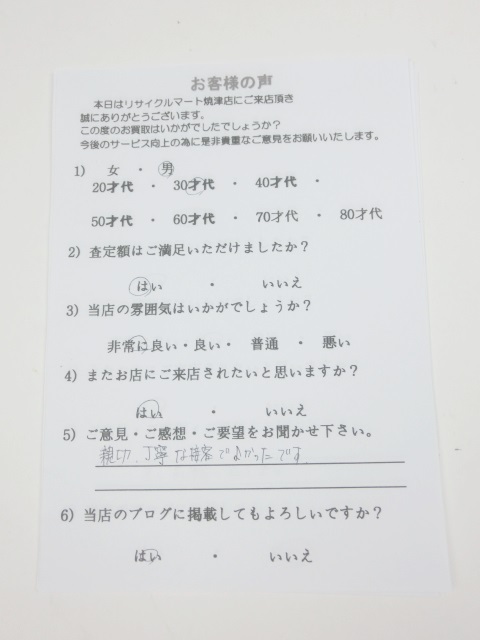 お客様の声
本日はリサイクルマート焼津店にご来店頂き
誠にありがとうございます。
この度のお買取はいかがでしたでしょうか？
今後のサービス向上の為に是非貴重なご意見をお願いいたします。
1) 女 ・ 男
20才代 ・ 30才代 ・ 40才代 ・
50才代 ・ 60才代 ・ 70才代 ・ 80才代
2) 査定額はご満足いただけましたか？
はい ・ いいえ
3) 当店の雰囲気はいかがでしょうか？
非常に良い・良い・ 普通 ・ 悪い
4) またお店にご来店されたいと思いますか？
はい ・ いいえ
5) ご意見・ご感想・ご要望をお聞かせ下さい。
親切、丁寧な接客でよかったです。
6) 当店のブログに掲載してもよろしいですか？
はい ・ いいえ